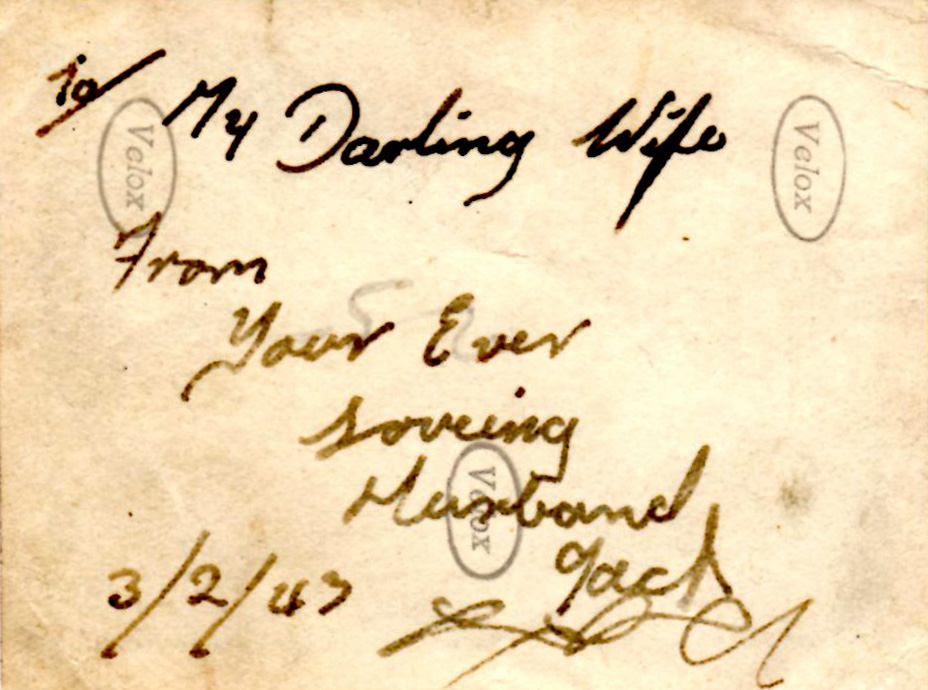 To/ My Darling Wife
Velox
Velox
From
Your Ever
Loveing
Husband
Velox
Jack
3/2/43